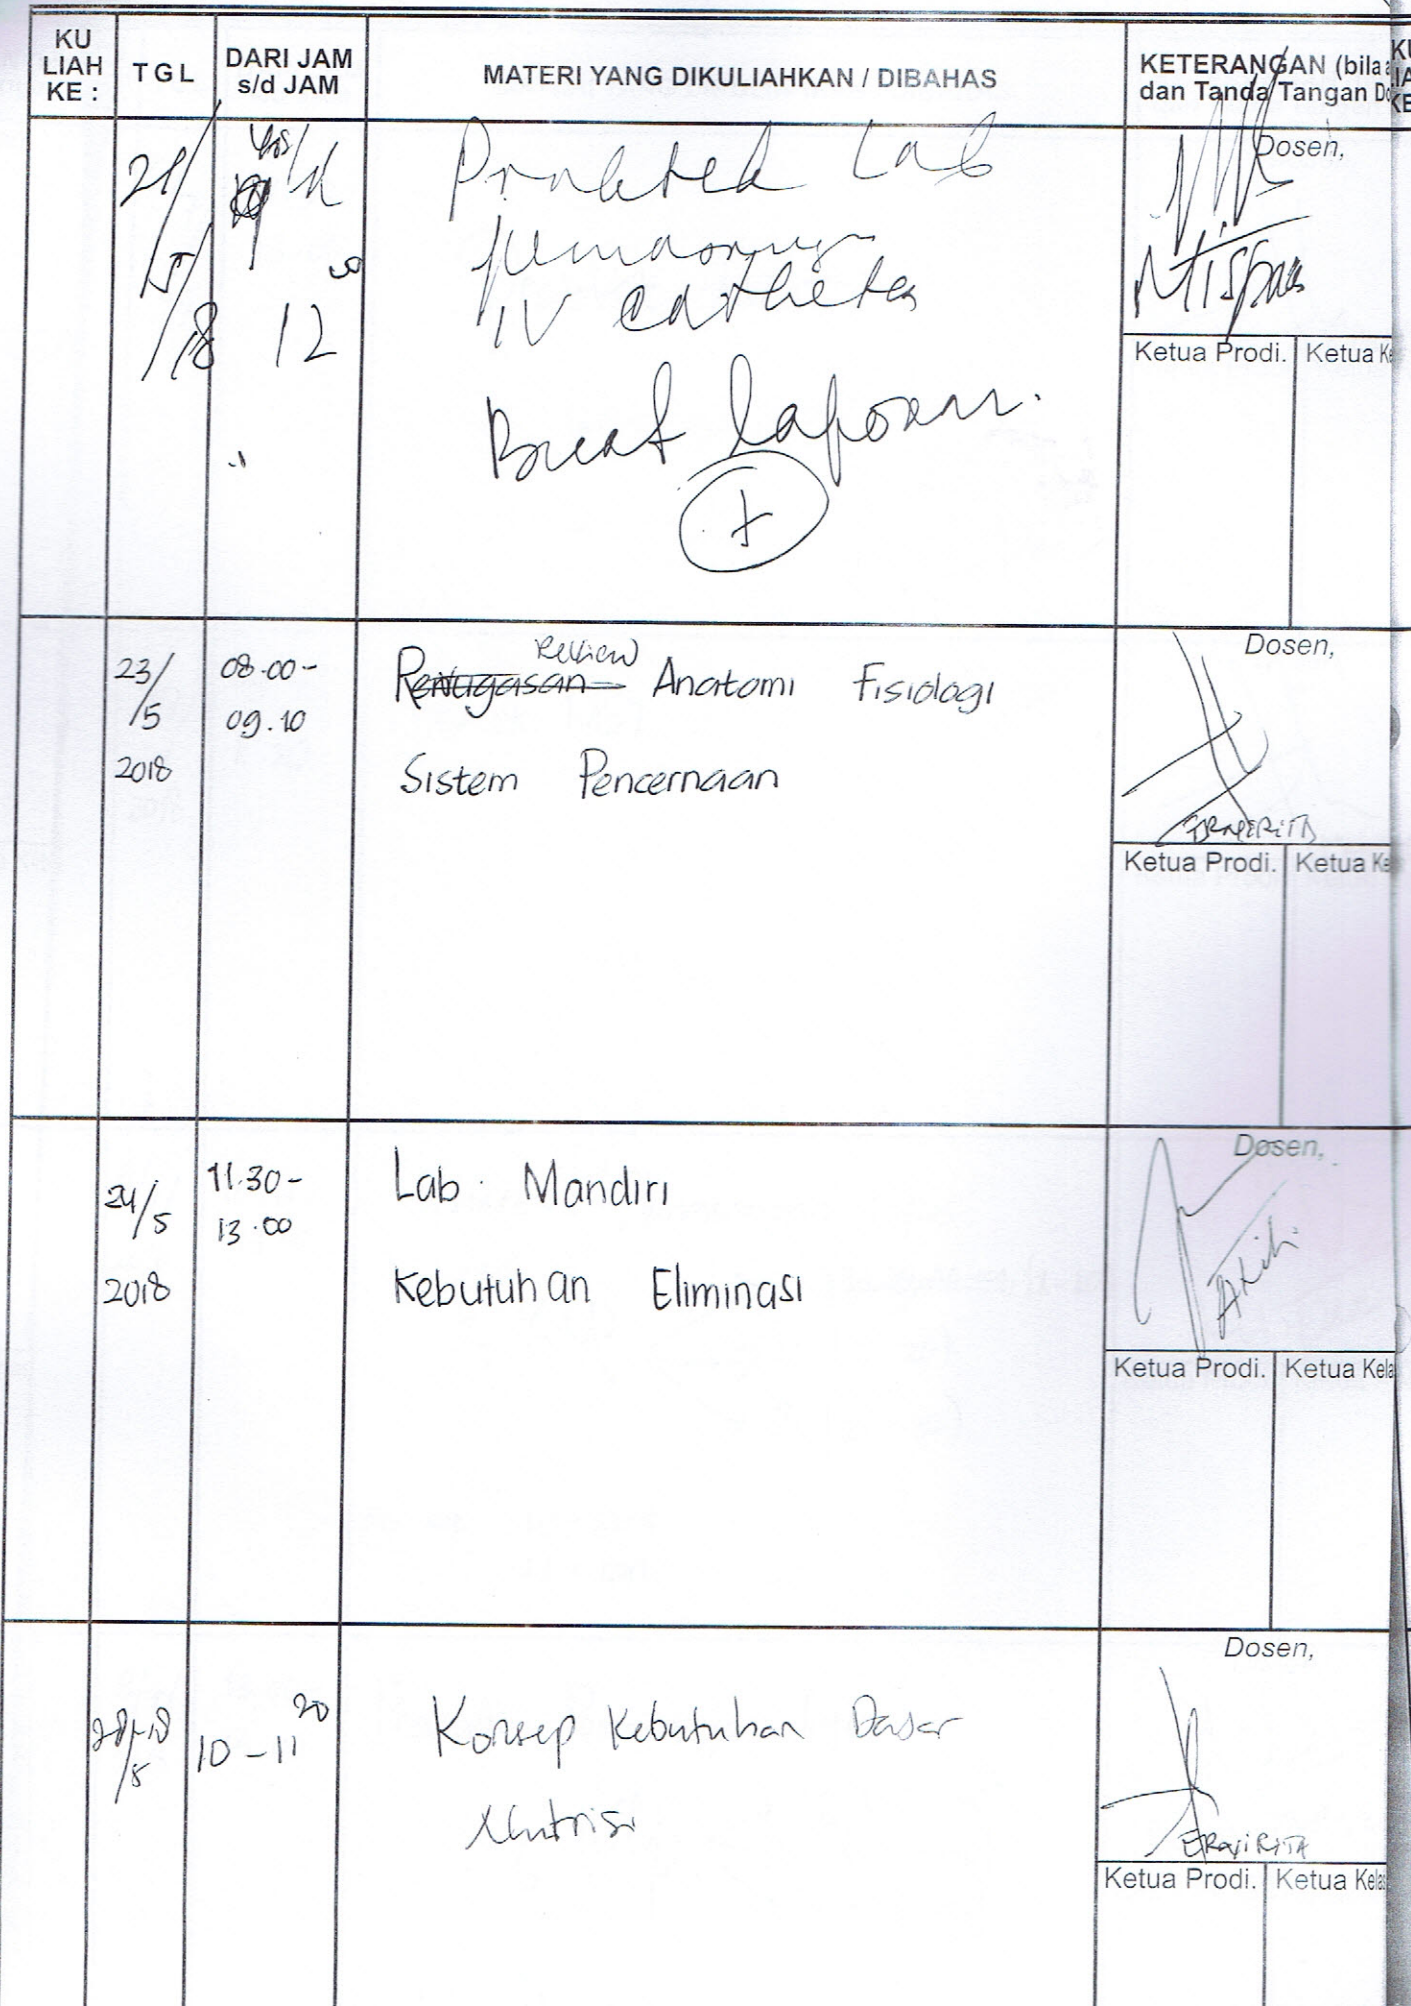 KU
LIAH
KE :
T G L
DARI JAM
s/d JAM
MATERI YANG DIKULIAHKAN / DIBAHAS
KETERANGAN (bila
dan Tanda Tangan Do
21/
5/
/18
s/d
12
Praktek Lab
IV catheter
Buat laporan.
+
Dosen,
Ketua Prodi. Ketua Ke
23/
/5
2018
08.00-
09.10
Review
Penugasan Anatomi Fisiologi
Sistem Pencernaan
Dosen,
Ketua Prodi. Ketua Ke
24/
/5
2018
11.30-
13.00
Lab. Mandiri
Kebutuhan Eliminasi
Dosen,
Ketua Prodi. Ketua Kela
/5
10 - 11 20
Konsep Kebutuhan Dasar
Nutrisi
Dosen,
Ketua Prodi. Ketua Kela